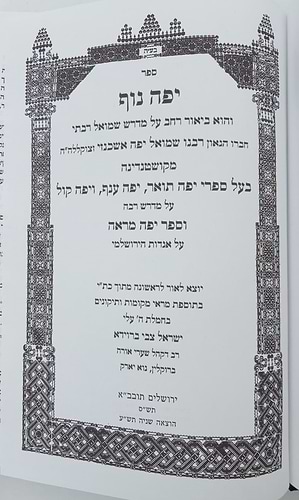 בעזה״י
ספר
יפה נוף
והוא ביאור רחב על מדרש שמואל רבתי
חברו הגאון רבנו שמואל יפה אשכנזי זצוקללה״ה
מקושטנדינה
בעל ספרי יפה תואר, יפה ענף, ויפה קול
על מדרש רבה
וספר יפה מראה
על אגדות הירושלמי
יוצא לאור לראשונה מתוך כת״י
בתוספת מראי מקומות ותיקונים
בחמלת ה׳ עלי
ישראל צבי ברוידא
רב דקהל שערי אורה
ברוקלין, נוא יארק
ירושלים תובב״א
תש״ס
הוצאה שניה תש״ע